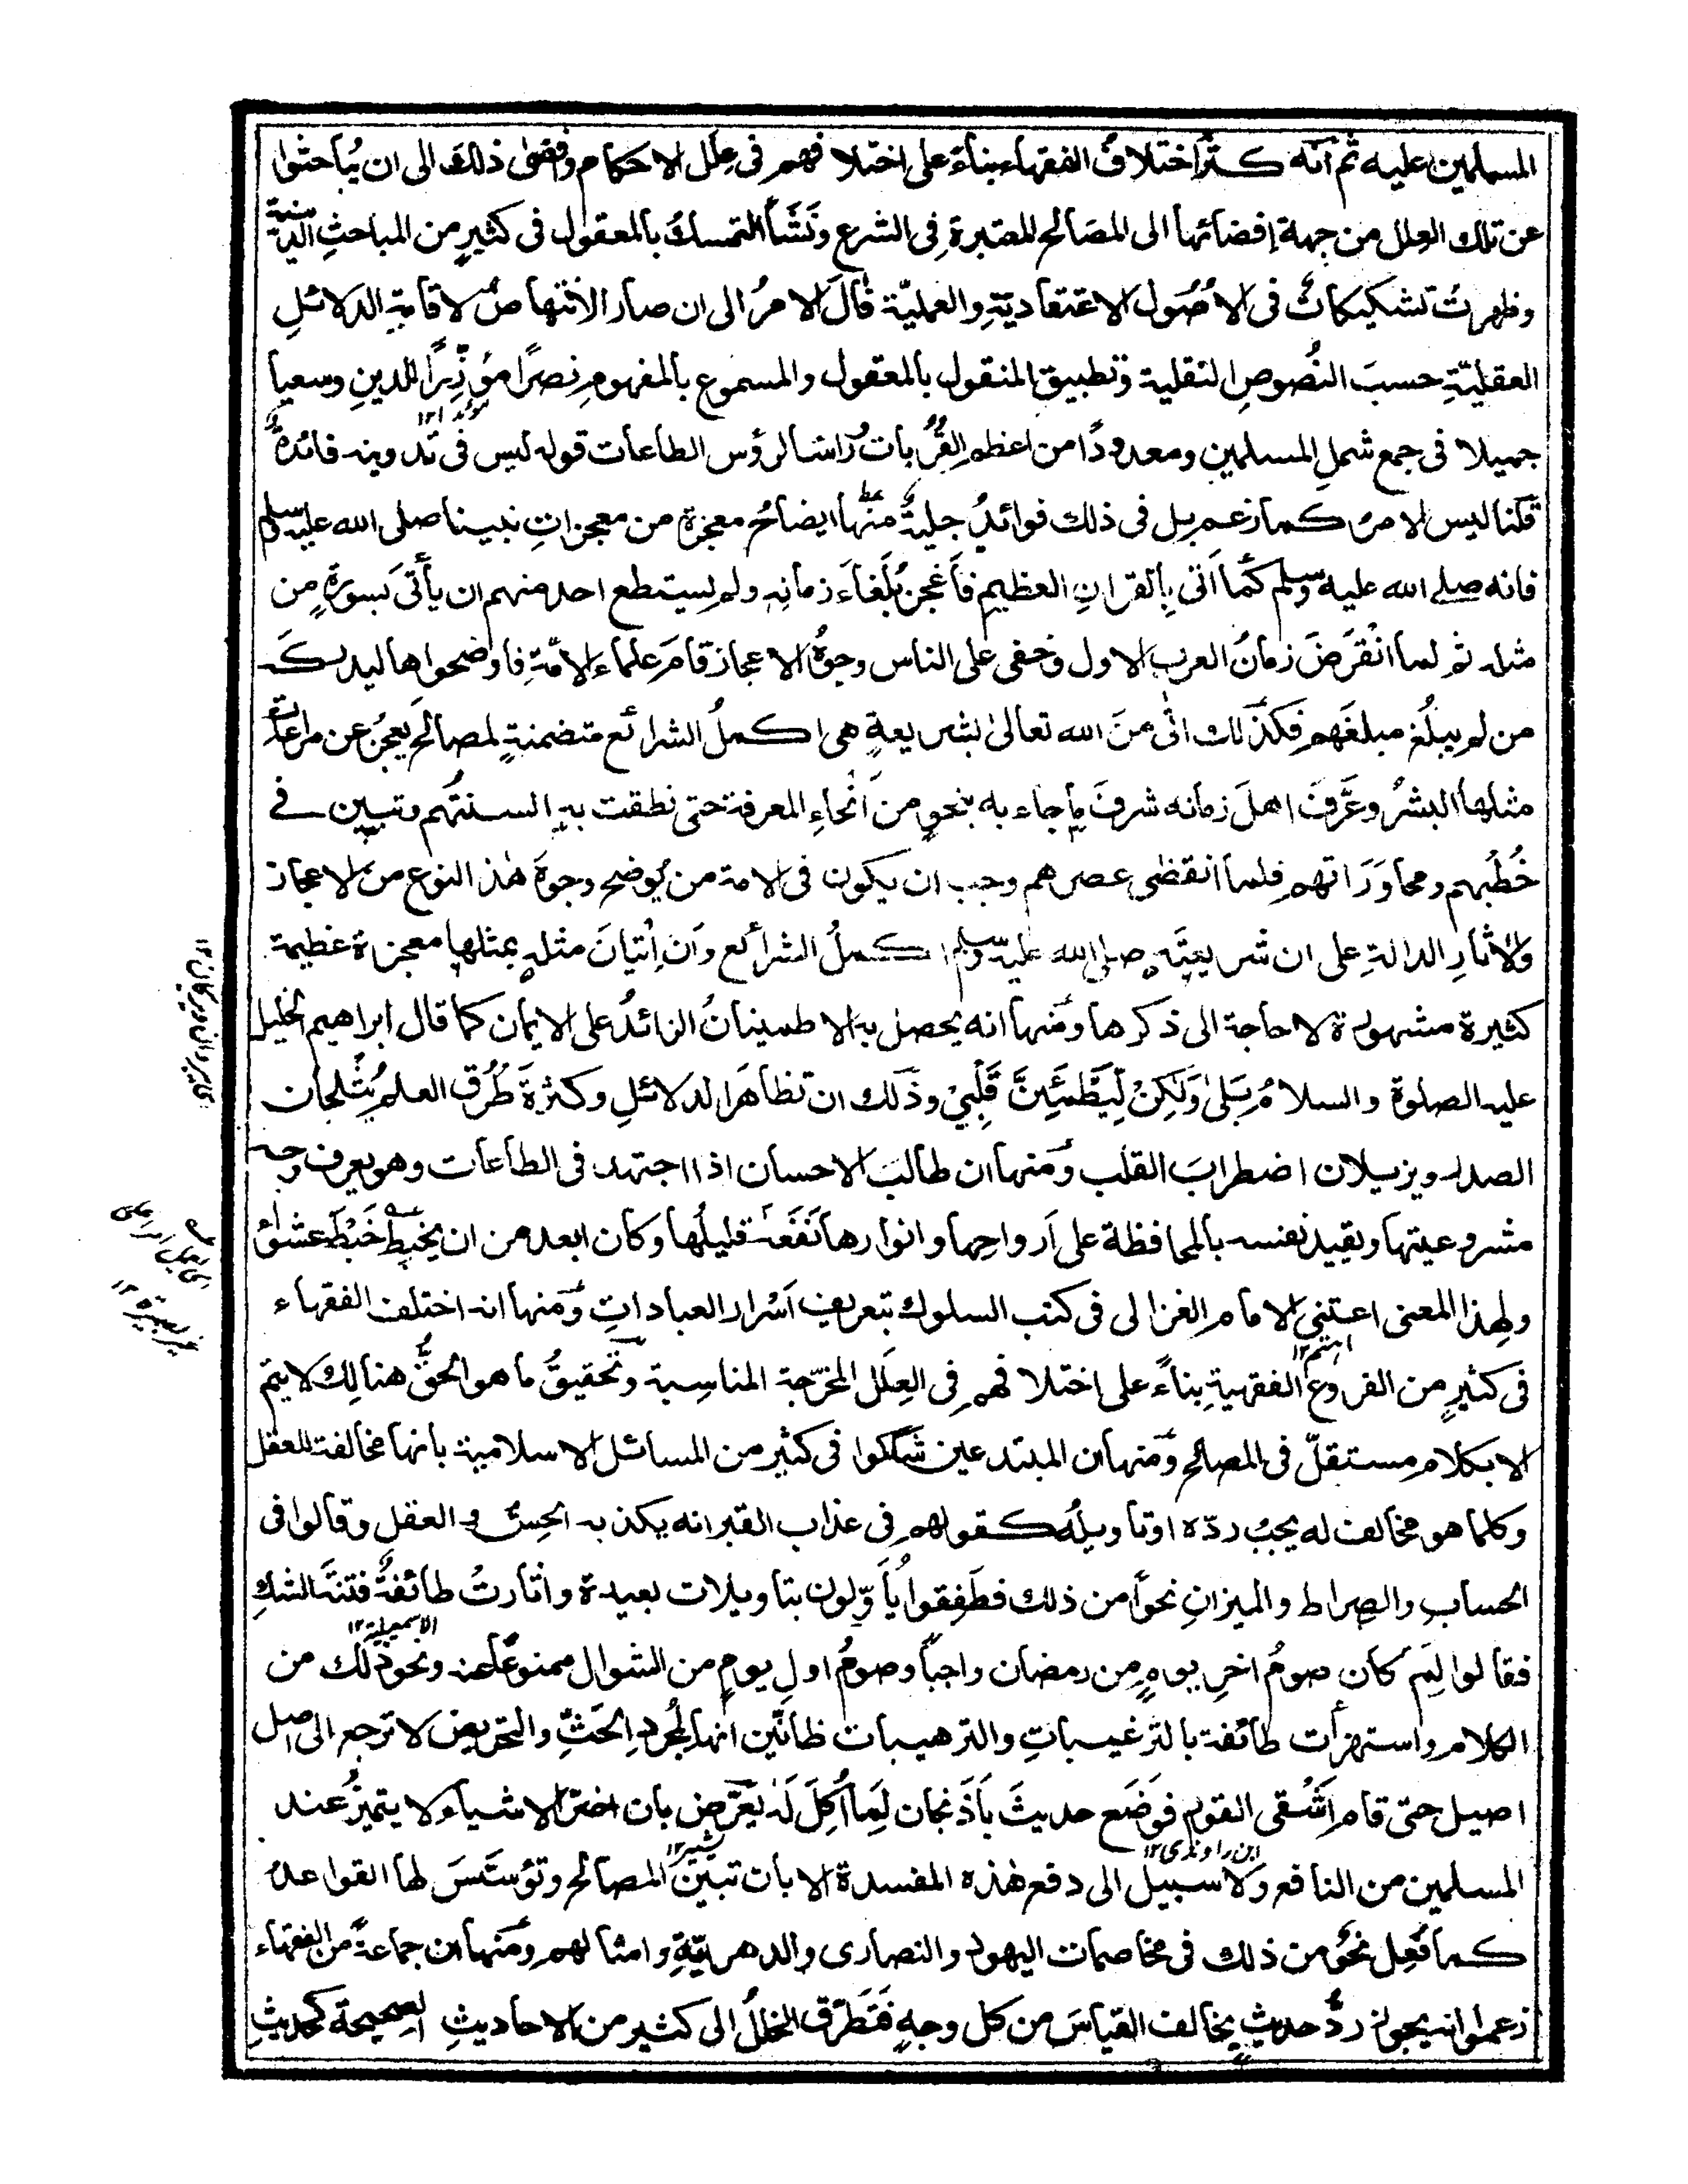 المسلمين عليه ثم أنه كثر اختلاف الفقهاء بناء على اختلافهم فى علل الاحكام وافضى ذلك الى ان يباحثوا
عن تلك العلل من جهة إفضائها الى المصالح المعتبرة فى الشرع ونشأ التمسك بالمعقول فى كثير من المباحث الدينية
وظهرت تشكيكات فى الاصول الاعتقادية والعملية فآل الامر الى ان صار الانتهاض لاقامة الدلائل
العقلية حسب النصوص النقلية وتطبيق المنقول بالمعقول والمسموع بالمفهوم نصرا مؤزرا للدين وسعيا
جميلا فى جمع شمل المسلمين ومعدودا من اعظم القربات ورأسا لرؤس الطاعات قوله ليس فى تدوينه فائدة
قلنا ليس الامر كما زعم بل فى ذلك فوائد جلية منها ايضاح معجزة من معجزات نبينا صلى الله عليه وسلم
فانه صلى الله عليه وسلم كما اتى بالقران العظيم فأعجز بلغاء زمانه ولم يستطع احد منهم ان يأتى بسورة من
مثله ثم لما انقرض زمان العرب الاول وخفى على الناس وجوه الاعجاز قام علماء الامة فاوضحوها ليدركه
من لم يبلغ مبلغهم فكذلك اتى من الله تعالى بشريعة هى اكمل الشرائع متضمنة لمصالح يعجز عن مراعاة
مثلها البشر وعرف اهل زمانه شرف ما جاء به بنحو من أنحاء المعرفة حتى نطقت به السنتهم وتبين فے
خطبهم ومحاوراتهم فلما انقضى عصرهم وجب ان يكون فى الامة من يوضح وجوه هذا النوع من الاعجاز
والاثار الدالة على ان شريعته صلى الله عليه وسلم اكمل الشرائع وان إتيان مثله بمثلها معجزة عظيمة
كثيرة مشهورة لا حاجة الى ذكرها ومنها انه يحصل به الاطمينان الزائد على الايمان كما قال ابراهيم الخليل
عليه الصلوة والسلام بلى ولكن ليطمئن قلبي وذلك ان تظاهر الدلائل وكثرة طرق العلم يثلجان
الصدر ويزيلان اضطراب القلب ومنها ان طالب الاحسان اذا اجتهد فى الطاعات وهو يعرف وجه
مشروعيتها ويقيد نفسه بالمحافظة على ارواحها وانوارها نفعه قليلها وكان ابعد من ان يخبط خبط عشواء
ولهذا المعنى اعتنى الامام الغزالى فى كتب السلوك بتعريف اسرار العبادات ومنها انه اختلف الفقهاء
فى كثير من الفروع الفقهية بناء على اختلافهم فى العلل المخرجة المناسبة وتحقيق ما هو الحق هنالك لا يتم
الا بكلام مستقل فى المصالح ومنها ان المبتدعين شككوا فى كثير من المسائل الاسلامية بانها مخالفة للعقل
وكلما هو مخالف له يجب رده او تاويله كقولهم فى عذاب القبر انه يكذب به الحس و العقل وقالوا فى
الحساب والصراط والميزان نحوا من ذلك فطفقوا يأولون بتاويلات بعيدة واثارت طائفة فتنة الشك
الاسمعيلية ١٢
فقالوا لم كان صوم اخر يوم من رمضان واجبا وصوم اول يوم من الشوال ممنوعا عنه ونحو ذلك من
الكلام واستهزأت طائفة بالترغيبات والترهيبات ظانين انها لمجرد الحث والتحريض لا ترجع الى اصل
اصيل حتى قام اشقى القوم فوضع حديث باذنجان لما أكل له يعرض بان اضر الاشياء لا يتميز عند
ابن راوندى ١٢
المسلمين من النافع ولا سبيل الى دفع هذه المفسدة الا بان تبين المصالح وتؤسس لها القواعد
كما فعل نحو من ذلك فى مخاصمات اليهود والنصارى والدهرية وامثالهم ومنها ان جماعة من الفقهاء
زعموا انه يجوز رد حديث يخالف القياس من كل وجه فتطرق الخلل الى كثير من الاحاديث الصحيحة كحديث